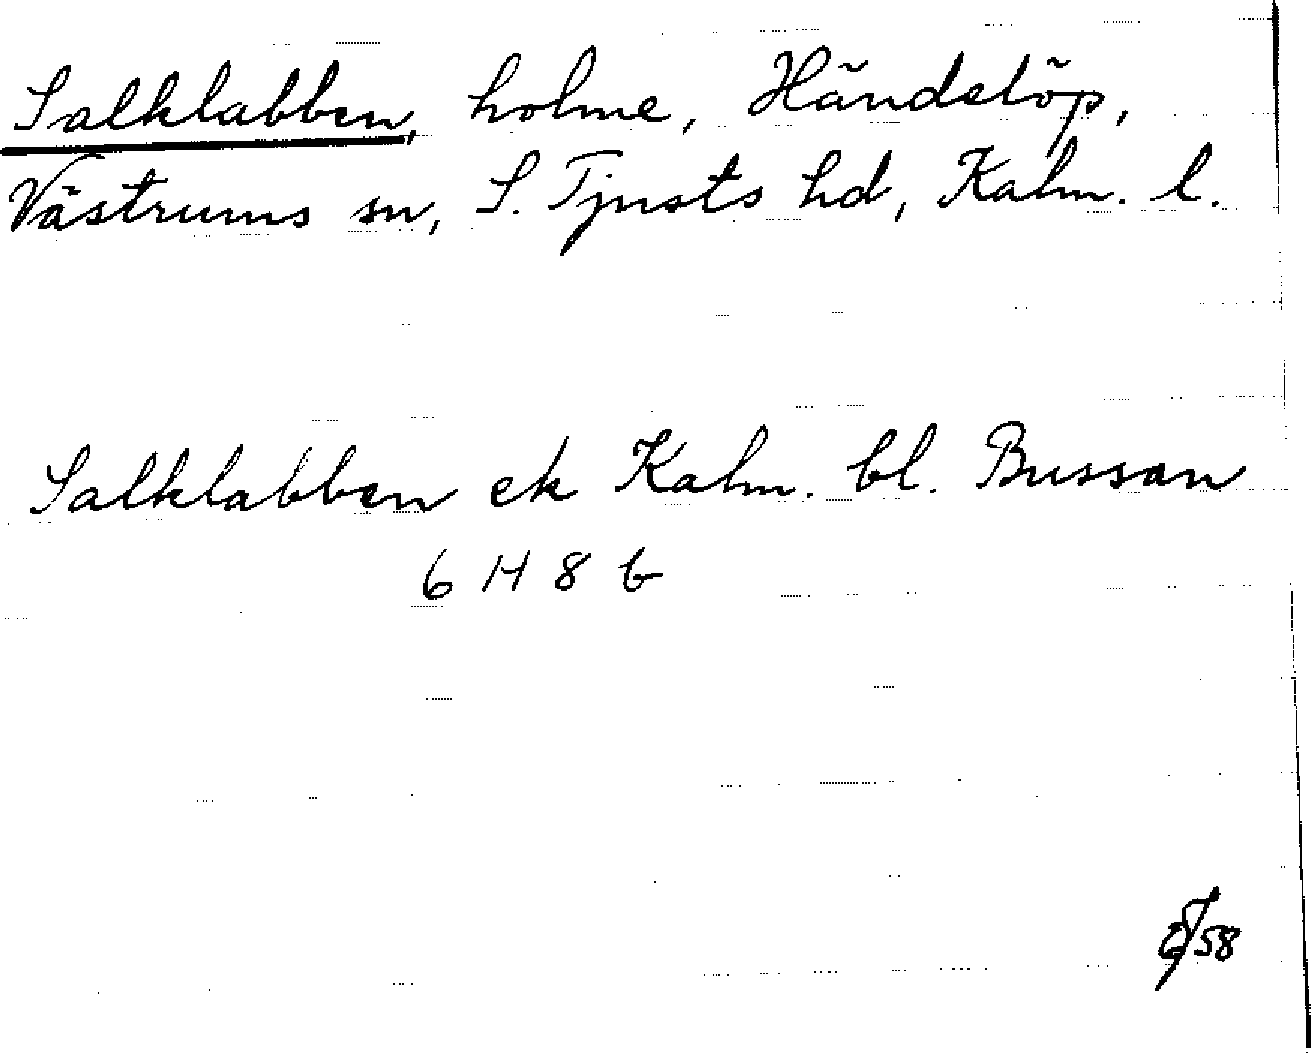 Salklabben, holme, Händelöp,
Västrums sn, S. Tjusts hd, Kalm. l.
Salklabben ek Kalm. bl. Bussan
6 H 8 b
58